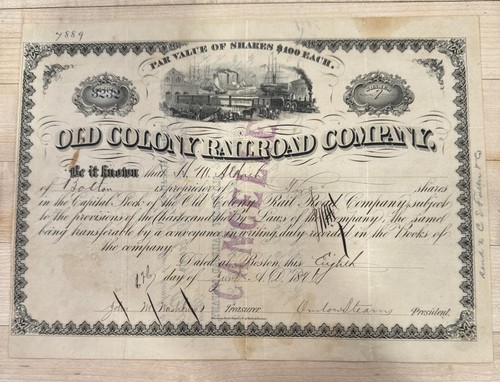 7889
PAR VALUE OF SHARES $100 EACH.
3232
OLD COLONY RAILROAD COMPANY.
Be it known that
of is proprietor of shares
in the Capital Stock of the Old Colony Rail Road Company, subject
to the provisions of the Charter and the By Laws of the Company, the same
being transferable by a conveyance in writing, duly recorded in the Books of
the company.
Dated at Boston, this Eighth
day of A.D. 18
Treasurer Onslow Stearns President.
CANCELLED